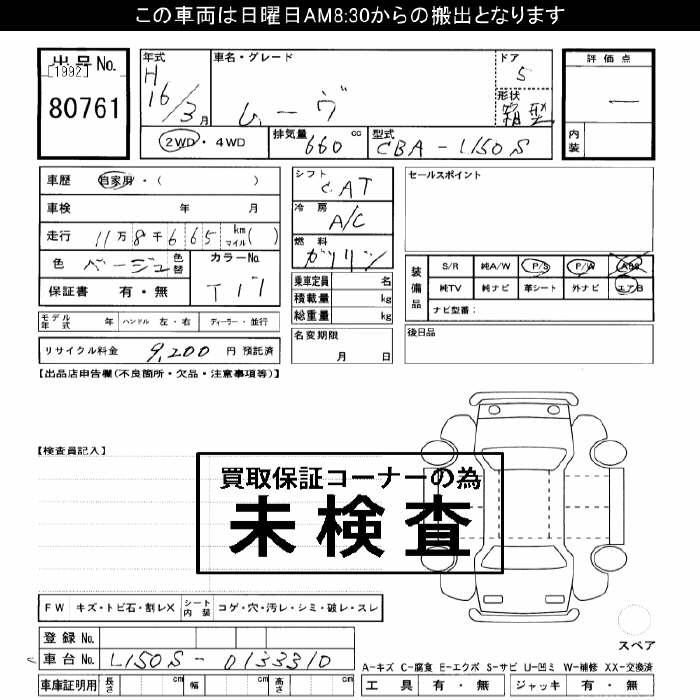 この車両は日曜日AM8:30からの搬出となります
出品No.
[1992]
80761
年式
H
16/3月
車名・グレード
ムーヴ
ドア
5
形状
箱型
評価点
ー
内装
2WD・4WD
排気量
660 cc
型式
CBA-L150S
車歴 自家用・( )
車検 年 月
走行 11万8千665 km マイル( )
色 ベージュ 色替
カラーNo.
T17
保証書 有・無
モデル年式 年 ハンドル 左・右 ディーラー・並行
リサイクル料金 9,200 円 預託済
シフト
CAT
冷房
A/C
燃料
ガソリン
乗車定員 名
積載量 kg
総重量 kg
名変期限
月 日
セールスポイント
装備品
S/R 純A/W P/S P/W ABS
純TV 純ナビ 革シート 外ナビ エアB
ナビ型番:
後日品
【出品店申告欄(不良箇所・欠品・注意事項等)】
【検査員記入】
買取保証コーナーの為
未検査
FW キズ・トビ石・割レX シート内装 コゲ・穴・汚レ・シミ・破レ・スレ
登録No.
車台No. L150S-0133310
車庫証明用 長さ cm 幅 cm 高さ cm
スペア
A-キズ C-腐食 E-エクボ S-サビ U-凹ミ W-補修 XX-交換済
工具 有・無 ジャッキ 有・無